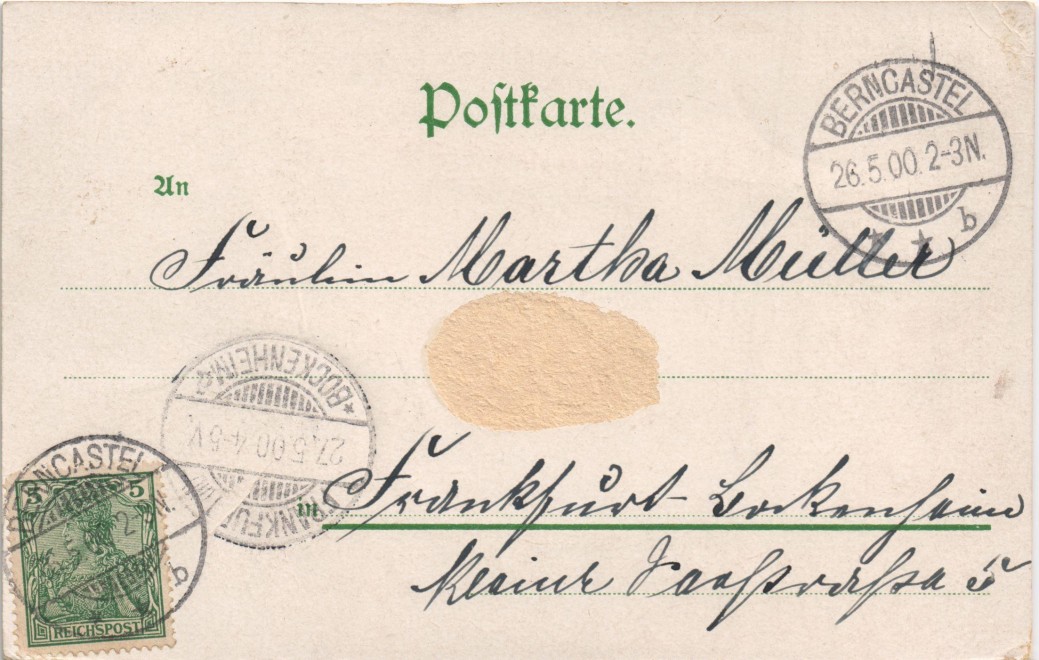 Postkarte.
BERNCASTEL
26.5.00. 2-3N.
b
An
Fräulein Martha Müller
* BOCKENHEIM *
27.5.00. 4-5 V.
FRANKFURT
in Frankfurt Bockenheim
Kleine 5
BERNCASTEL
b
5 5
REICHSPOST